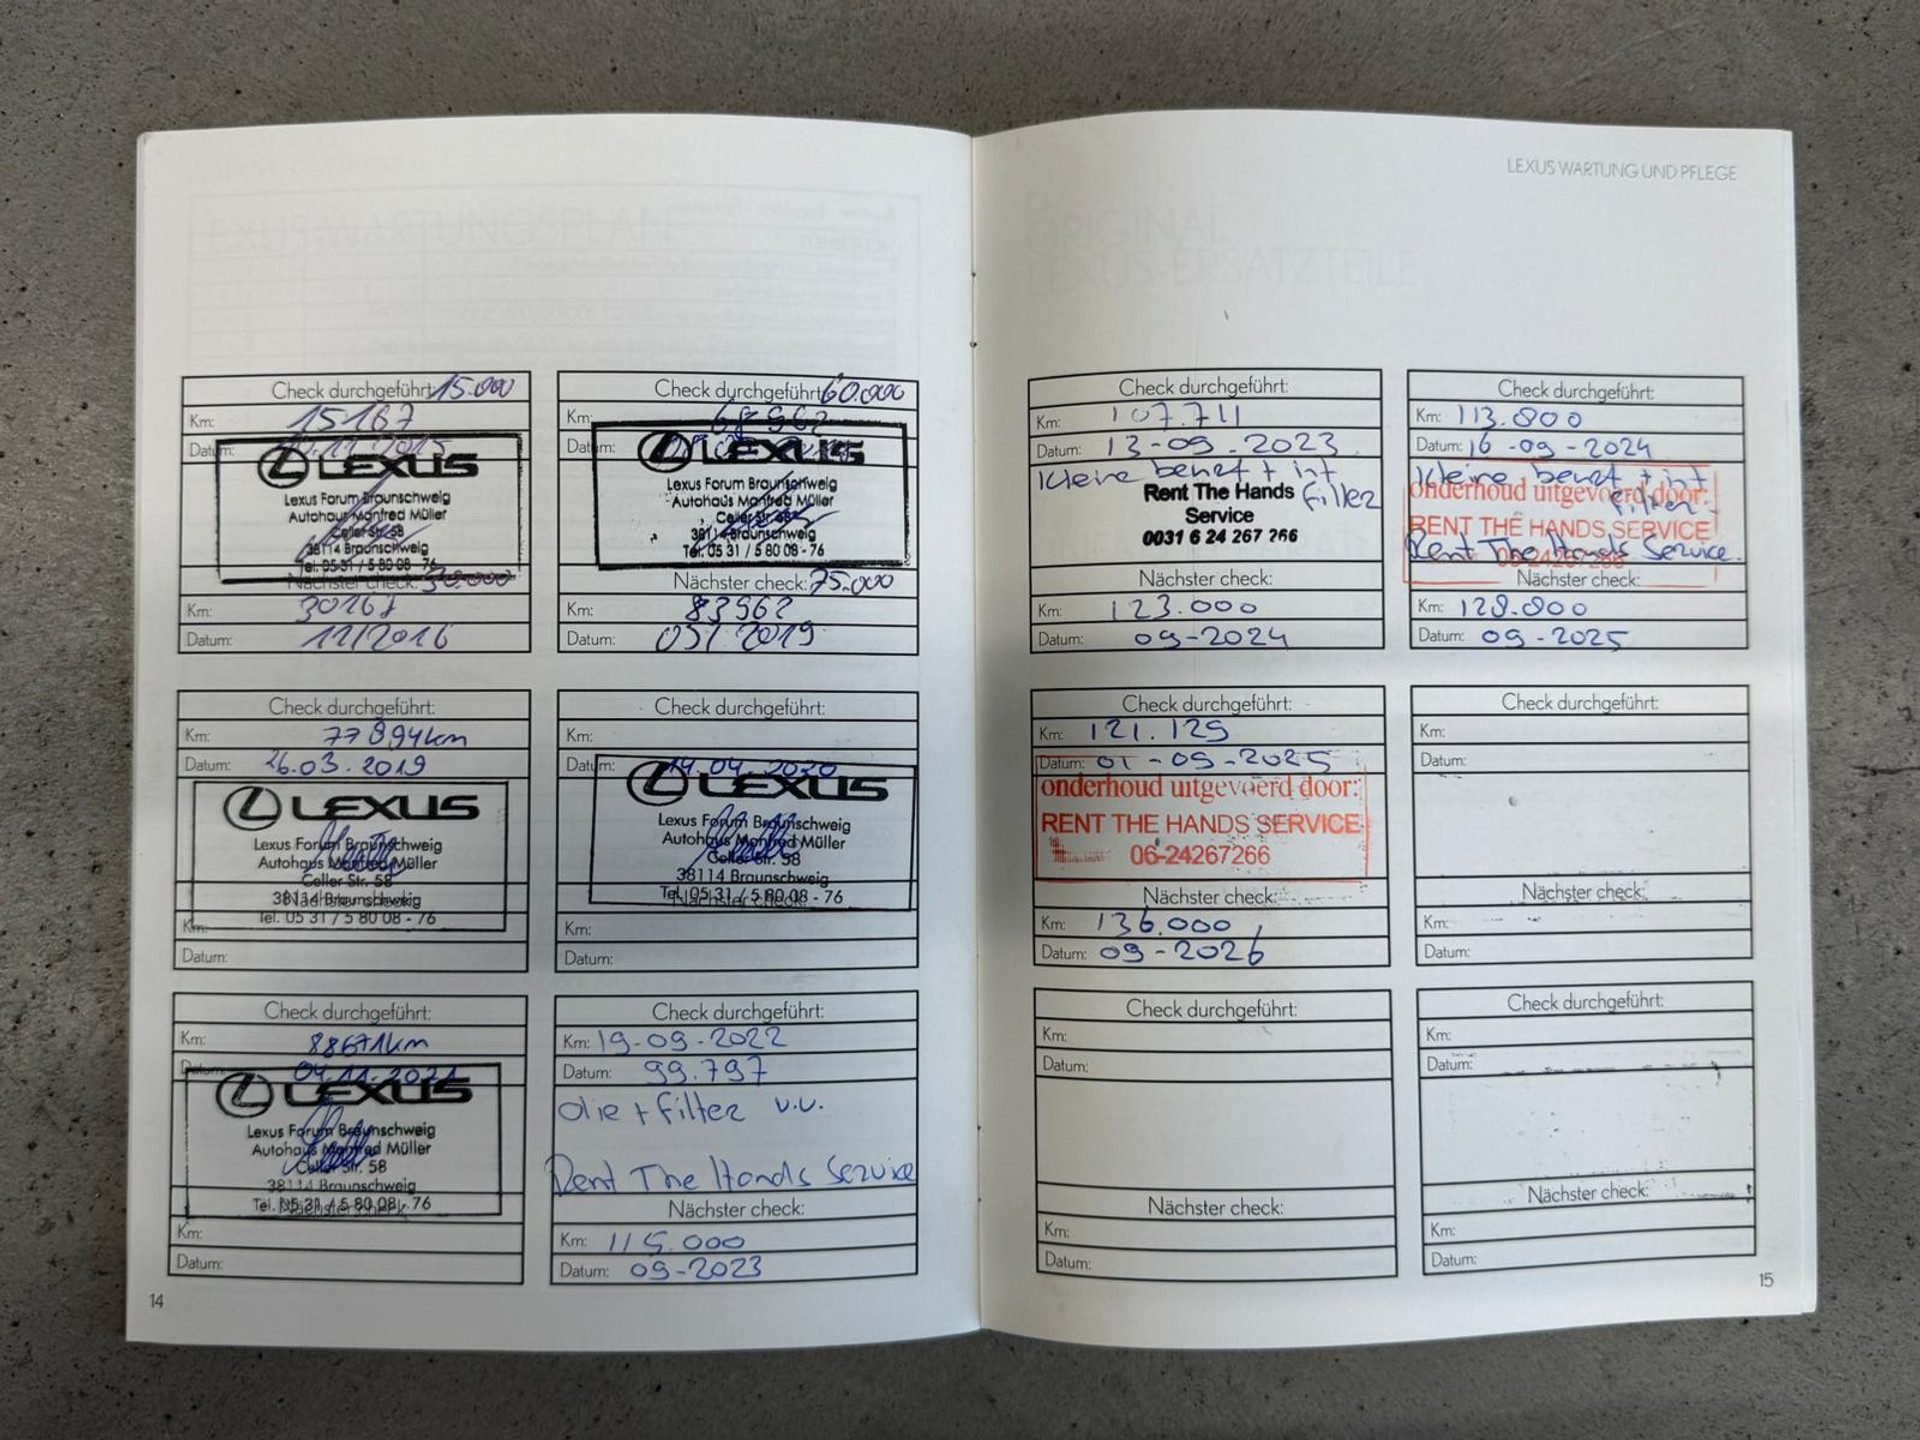 Check durchgeführt: 15.000
Km: 15167
Datum: 2015
LEXUS
Lexus Forum Braunschweig
Autohaus Manfred Müller
Celler Str. 58
38114 Braunschweig
Tel. 05 31 / 5 80 08 - 76
Nächster check: 30.000
Km: 30167
Datum: 11/2016
Check durchgeführt: 60.000
Km:
Datum:
LEXUS
Lexus Forum Braunschweig
Autohaus Manfred Müller
Celler Str. 58
38114 Braunschweig
Tel. 05 31 / 5 80 08 - 76
Nächster check: 75.000
Km: 83962
Datum: 03/2019
Check durchgeführt:
Km: 77894km
Datum: 26.03.2019
LEXUS
Lexus Forum Braunschweig
Autohaus Manfred Müller
Celler Str. 58
38114 Braunschweig
Nächster check:
Tel. 05 31 / 5 80 08 - 76
Km:
Datum:
Check durchgeführt:
Km:
Datum: 14.04.2020
LEXUS
Lexus Forum Braunschweig
Autohaus Manfred Müller
Celler Str. 58
38114 Braunschweig
Tel. 05 31 / 5 80 08 - 76
Nächster check:
Km:
Datum:
Check durchgeführt:
Km: 88671km
Datum: 04.11.2021
LEXUS
Lexus Forum Braunschweig
Autohaus Manfred Müller
Celler Str. 58
38114 Braunschweig
Tel. 05 31 / 5 80 08 - 76
Nächster check:
Km:
Datum:
Check durchgeführt:
Km: 19-09-2022
Datum: 99.797
olie + filter v.v.
Rent The Hands Service
Nächster check:
Km: 115.000
Datum: 09-2023
14
LEXUS WARTUNG UND PFLEGE
ORIGINAL
LEXUS-ERSATZTEILE
Check durchgeführt:
Km: 107.711
Datum: 13-09-2023
Kleine beurt + int
filter
Rent The Hands
Service
0031 6 24 267 266
Nächster check:
Km: 123.000
Datum: 09-2024
Check durchgeführt:
Km: 113.800
Datum: 16-09-2024
Kleine beurt + int
filter
onderhoud uitgevoerd door:
RENT THE HANDS SERVICE
Rent The Hands Service.
06-24267266
Nächster check:
Km: 128.800
Datum: 09-2025
Check durchgeführt:
Km: 121.129
Datum: 01-09-2025
onderhoud uitgevoerd door:
RENT THE HANDS SERVICE
06-24267266
Nächster check:
Km: 136.000
Datum: 09-2026
Check durchgeführt:
Km:
Datum:
Nächster check:
Km:
Datum:
Check durchgeführt:
Km:
Datum:
Nächster check:
Km:
Datum:
Check durchgeführt:
Km:
Datum:
Nächster check:
Km:
Datum:
15